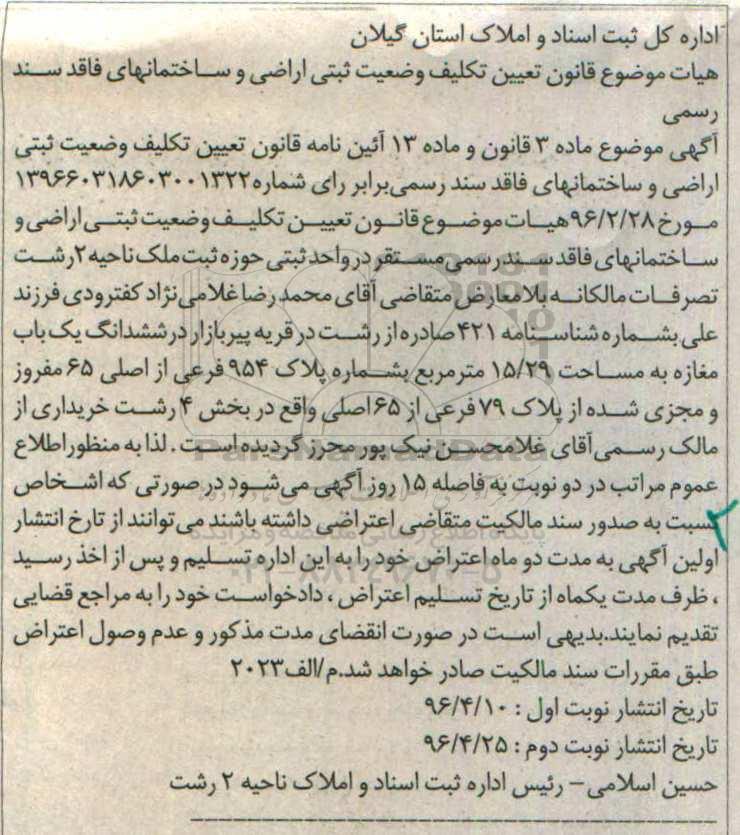 اداره کل ثبت اسناد و املاک استان گیلان
هیات موضوع قانون تعیین تکلیف وضعیت ثبتی اراضی و ساختمانهای فاقد سند
رسمی
آگهی موضوع ماده ۳ قانون و ماده ۱۳ آئین نامه قانون تعیین تکلیف وضعیت ثبتی
اراضی و ساختمانهای فاقد سند رسمی برابر رای شماره ۱۳۹۶۶۰۳۱۸۶۰۳۰۰۱۳۲۲
مورخ ۹۶/۲/۲۸ هیات موضوع قانون تعیین تکلیف وضعیت ثبتی اراضی و
ساختمانهای فاقد سند رسمی مستقر در واحد ثبتی حوزه ثبت ملک ناحیه ۲ رشت
تصرفات مالکانه بلامعارض متقاضی آقای محمد رضا غلامی نژاد کفترودی فرزند
علی بشماره شناسنامه ۴۲۱ صادره از رشت در قریه پیربازار در ششدانگ یک باب
مغازه به مساحت ۱۵/۲۹ مترمربع بشماره پلاک ۹۵۴ فرعی از اصلی ۶۵ مفروز
و مجزی شده از پلاک ۷۹ فرعی از ۶۵ اصلی واقع در بخش ۴ رشت خریداری از
مالک رسمی آقای غلامحسن نیک پور محرز گردیده است . لذا به منظور اطلاع
عموم مراتب در دو نوبت به فاصله ۱۵ روز آگهی می شود در صورتی که اشخاص
نسبت به صدور سند مالکیت متقاضی اعتراضی داشته باشند می توانند از تارخ انتشار
اولین آگهی به مدت دو ماه اعتراض خود را به این اداره تسلیم و پس از اخذ رسید
، ظرف مدت یکماه از تاریخ تسلیم اعتراض ، دادخواست خود را به مراجع قضایی
تقدیم نمایند.بدیهی است در صورت انقضای مدت مذکور و عدم وصول اعتراض
طبق مقررات سند مالکیت صادر خواهد شد.م/الف۲۰۲۳
تاریخ انتشار نوبت اول : ۹۶/۴/۱۰
تاریخ انتشار نوبت دوم : ۹۶/۴/۲۵
حسین اسلامی – رئیس اداره ثبت اسناد و املاک ناحیه ۲ رشت